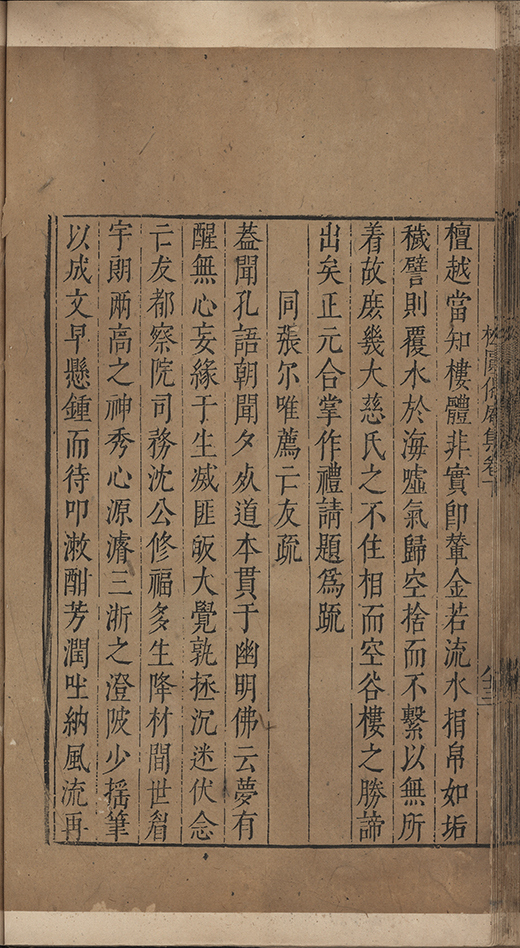 檀越當知樓體非實卽輦金若流水捐帛如垢
穢譬則覆水於海噓氣歸空捨而不繫以無所
着故庶幾大慈氏之不住相而空谷樓之勝諦
出矣正元合掌作禮請題爲䟽
同張尔唯薦亡友疏
葢聞孔語朝聞夕㱙道本貫于幽明佛云夢有
醒無心妄緣于生滅匪皈大覺孰拯沉迷伏念
亡友都察院司務沈公修福多生降材間世眉
宇朗兩高之神秀心源濬三浙之澄陂少揺筆
以成文早懸鍾而待叩漱酣芳潤吐納風流再